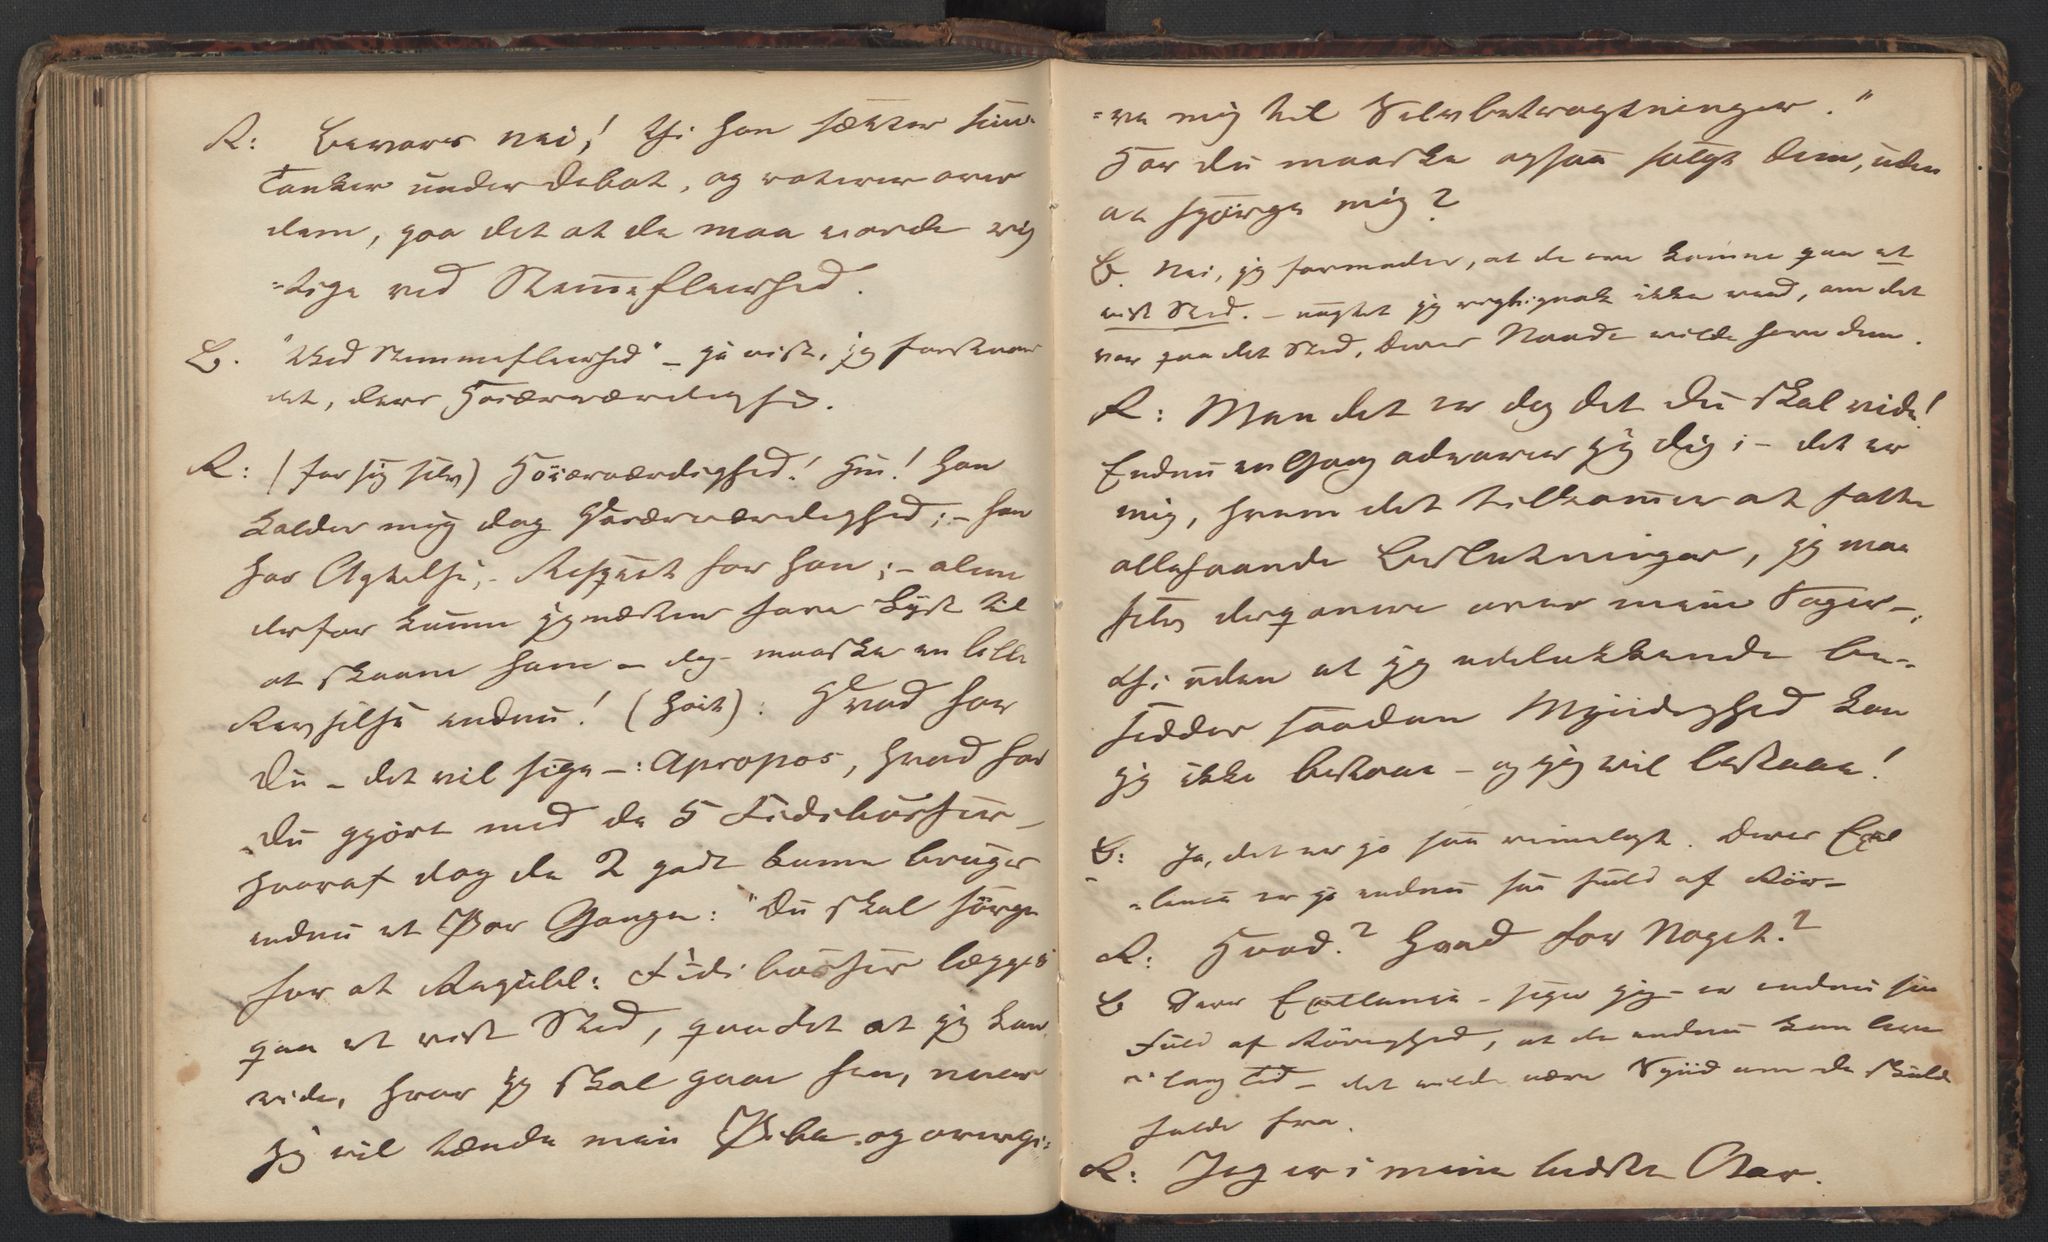 R: Bevares nei! thi han sætter sine
Tanker under Debat, og voterer over
dem, paa det at de maa vorde rig
=tige ved Stemmefleerhed.
B. "Ved Stemmefleerhed" – ja vist, jeg forstaaer
det, deres Høiærværdighed.
R: (for sig selv) Høiærværdighed! Hm! Han
kalder mig dog Høiærværdighed; – han
har Agtelse, – Respect har han; – alene
derfor kunne jeg næsten have Lyst til
at skaane ham – dog – maaskee en lille
Revselse endnu! (høit): Hvad har
Du – det vil sige –: Apropos, hvad har
Du gjort med de 5 Fidibusser –
hvoraf dog de 2 godt kunne bruges
endnu et Par Gange: "Du skal sørge
for at Regulel: Fidibusser lægges
paa et vist Sted, paa det at jeg kan
vide, hvor jeg skal gaae hen, naar
jeg vil tænde min Pibe og overgi=
=ve mig til Selvbetragtninger."
Har du maaske ogsaa solgt dem, uden
at spørge mig?
B. Nei, jeg formoder, at de ere komne paa et
vist Sted. – uagtet jeg rigtignok ikke veed, om det
var paa det Sted, Deres Naade vilde have dem.
R: Men det er dog det Du skal vide!
Endnu en Gang advarer jeg dig; – det er
mig, hvem det tilkommer at fatte
alleslags Beslutninger, jeg maa
selv disponere over mine Sager –;
thi uden at jeg udelukkende be=
sidder saadan Myndighed kan
jeg ikke bestaae – og jeg vil bestaae!
B: Ja, det er jo saa rimeligt. Deres Exel
=lence er jo endnu saa fuld af Rør –
R: Hvad? Hvad for Noget?
B Deres Exellence – siger jeg – er endnu saa
fuld af Rørighed, at de endnu kan leve
i lang Tid – det vilde være Synd om de skulde
falde fra.
R: Jeg er i mine bedste Aar.